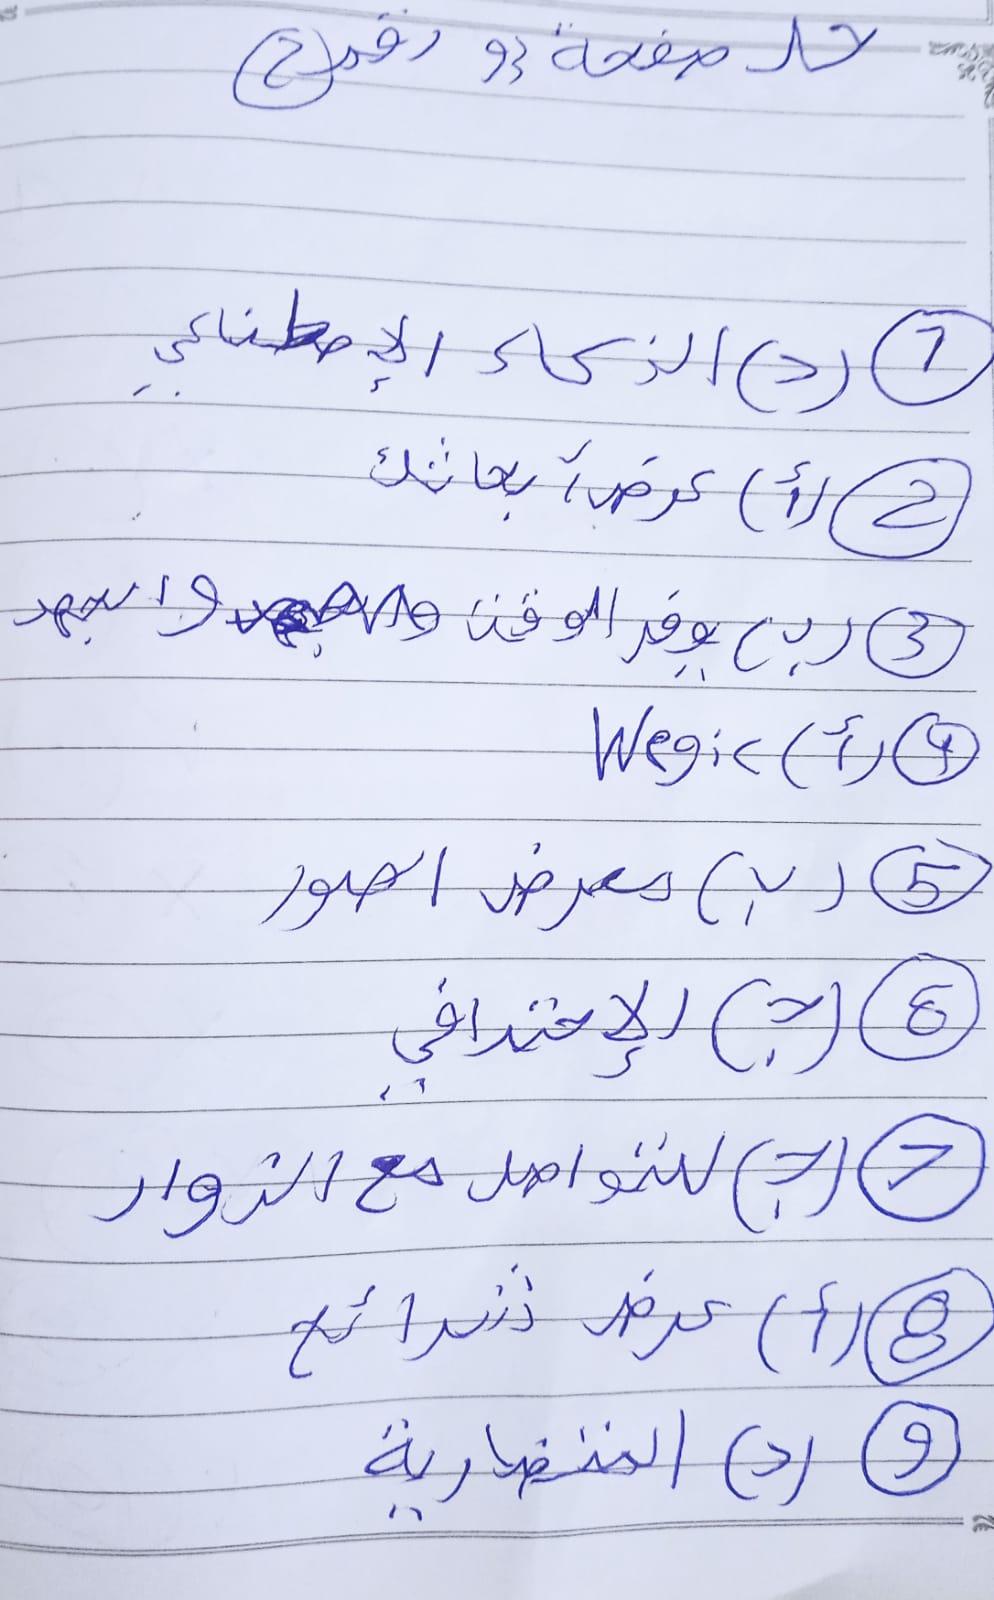 حل صفحة ذو رقم (2)
1 (د) الذكاء الإصطناعي
2 (أ) عرض أبحاثك
3 (ب) يوفر الوقت والجهد
4 (أ) Wegic
5 (ب) معرض الصور
6 (ج) الإحترافي
7 (ج) للتواصل مع الزوار
8 (أ) عرض شرائح
9 (د)